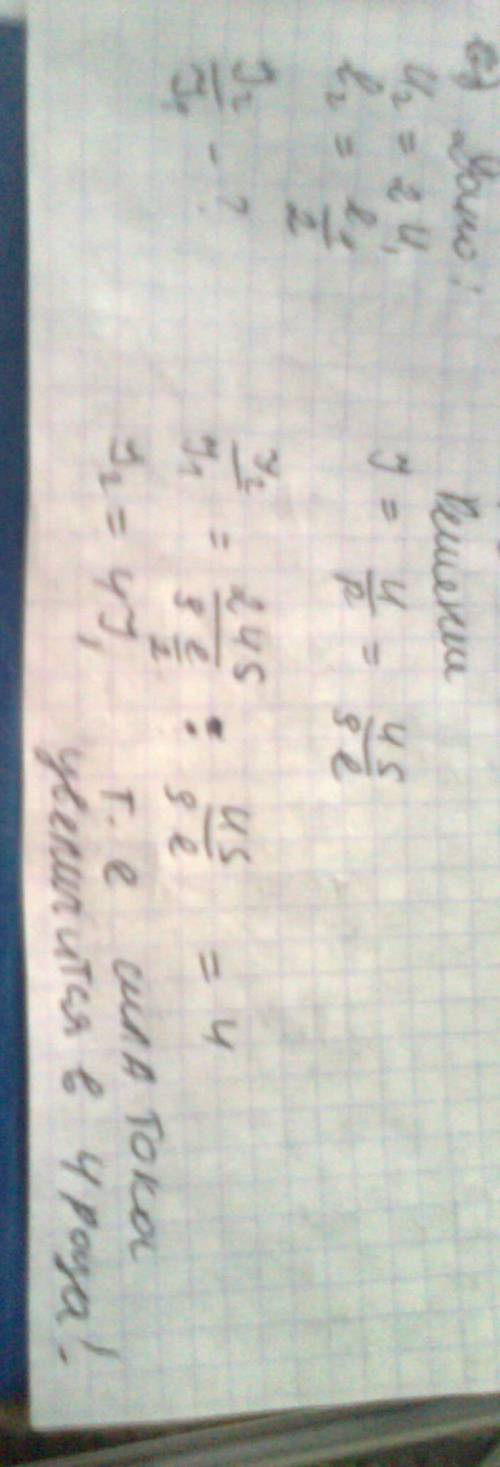 c) Дано:
U₂ = 2U₁
l₂ = l₁/2
I₂/I₁ - ?
Решение
I = U/R = US/ρl
I₂/I₁ = 2US/(ρ l/2) : US/ρl = 4
I₂ = 4I₁ т.е сила тока
увеличится в 4 раза!